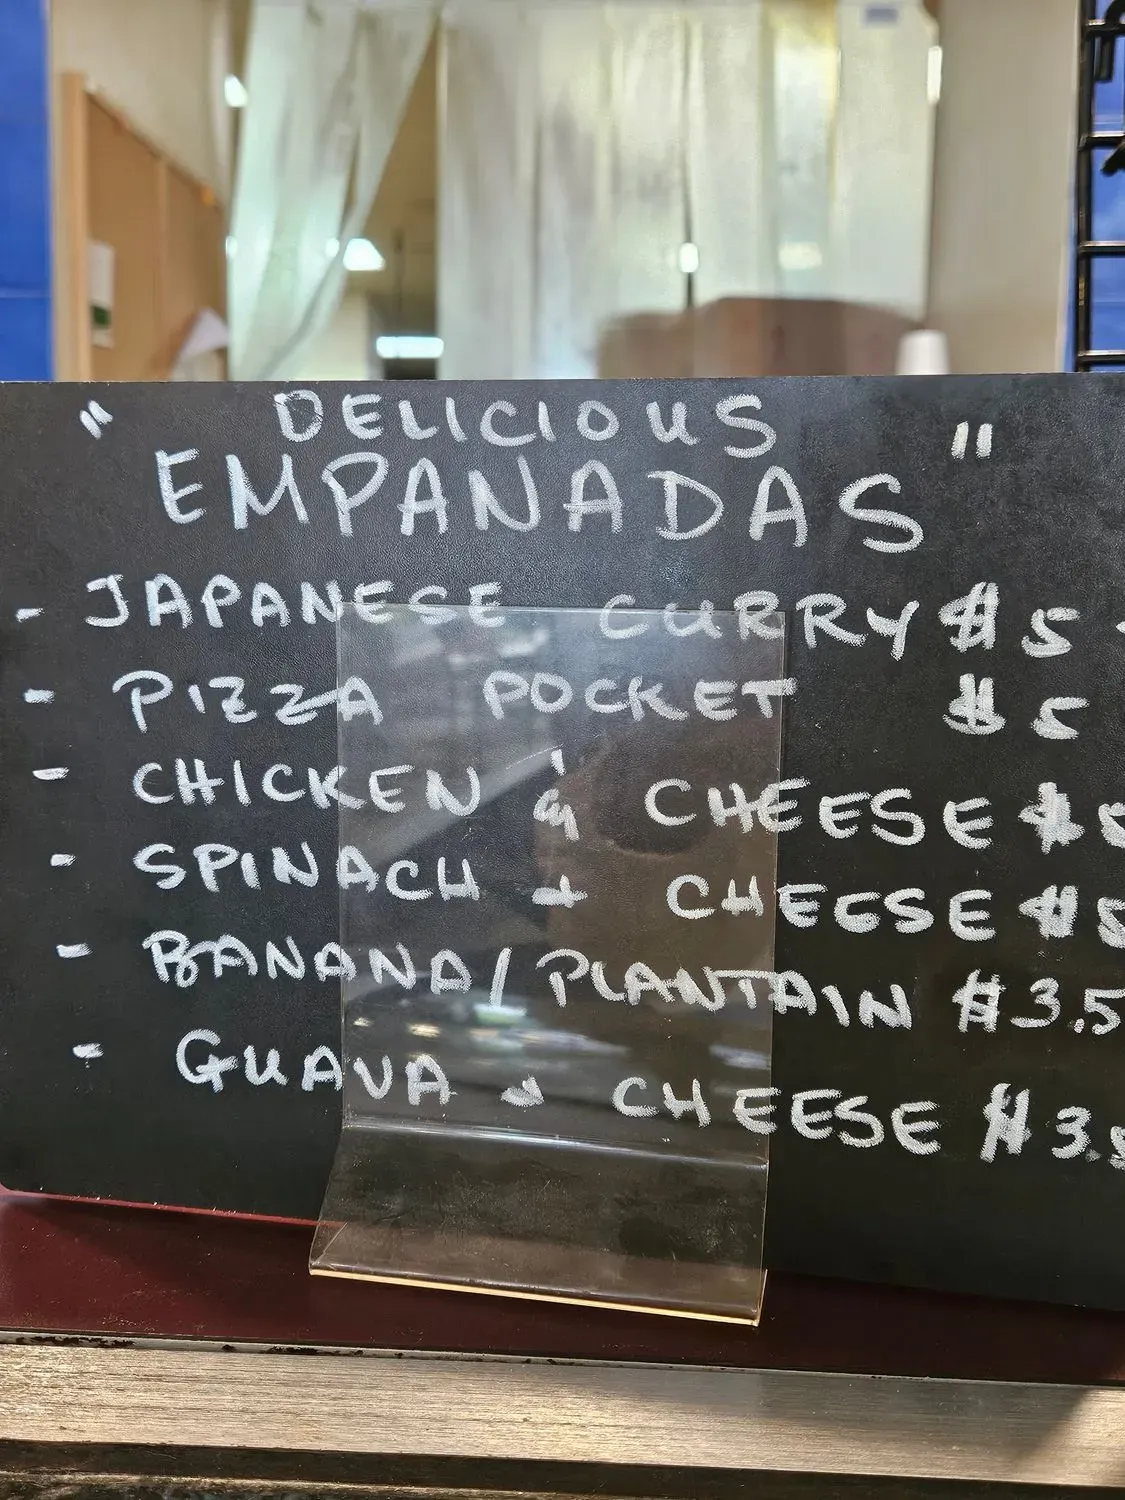 " DELICIOUS "
EMPANADAS
- JAPANESE CURRY $5
- PIZZA POCKET $5
- CHICKEN & CHEESE $5
- SPINACH + CHEESE $5
- BANANA/PLANTAIN $3.5
- GUAVA & CHEESE $3.5